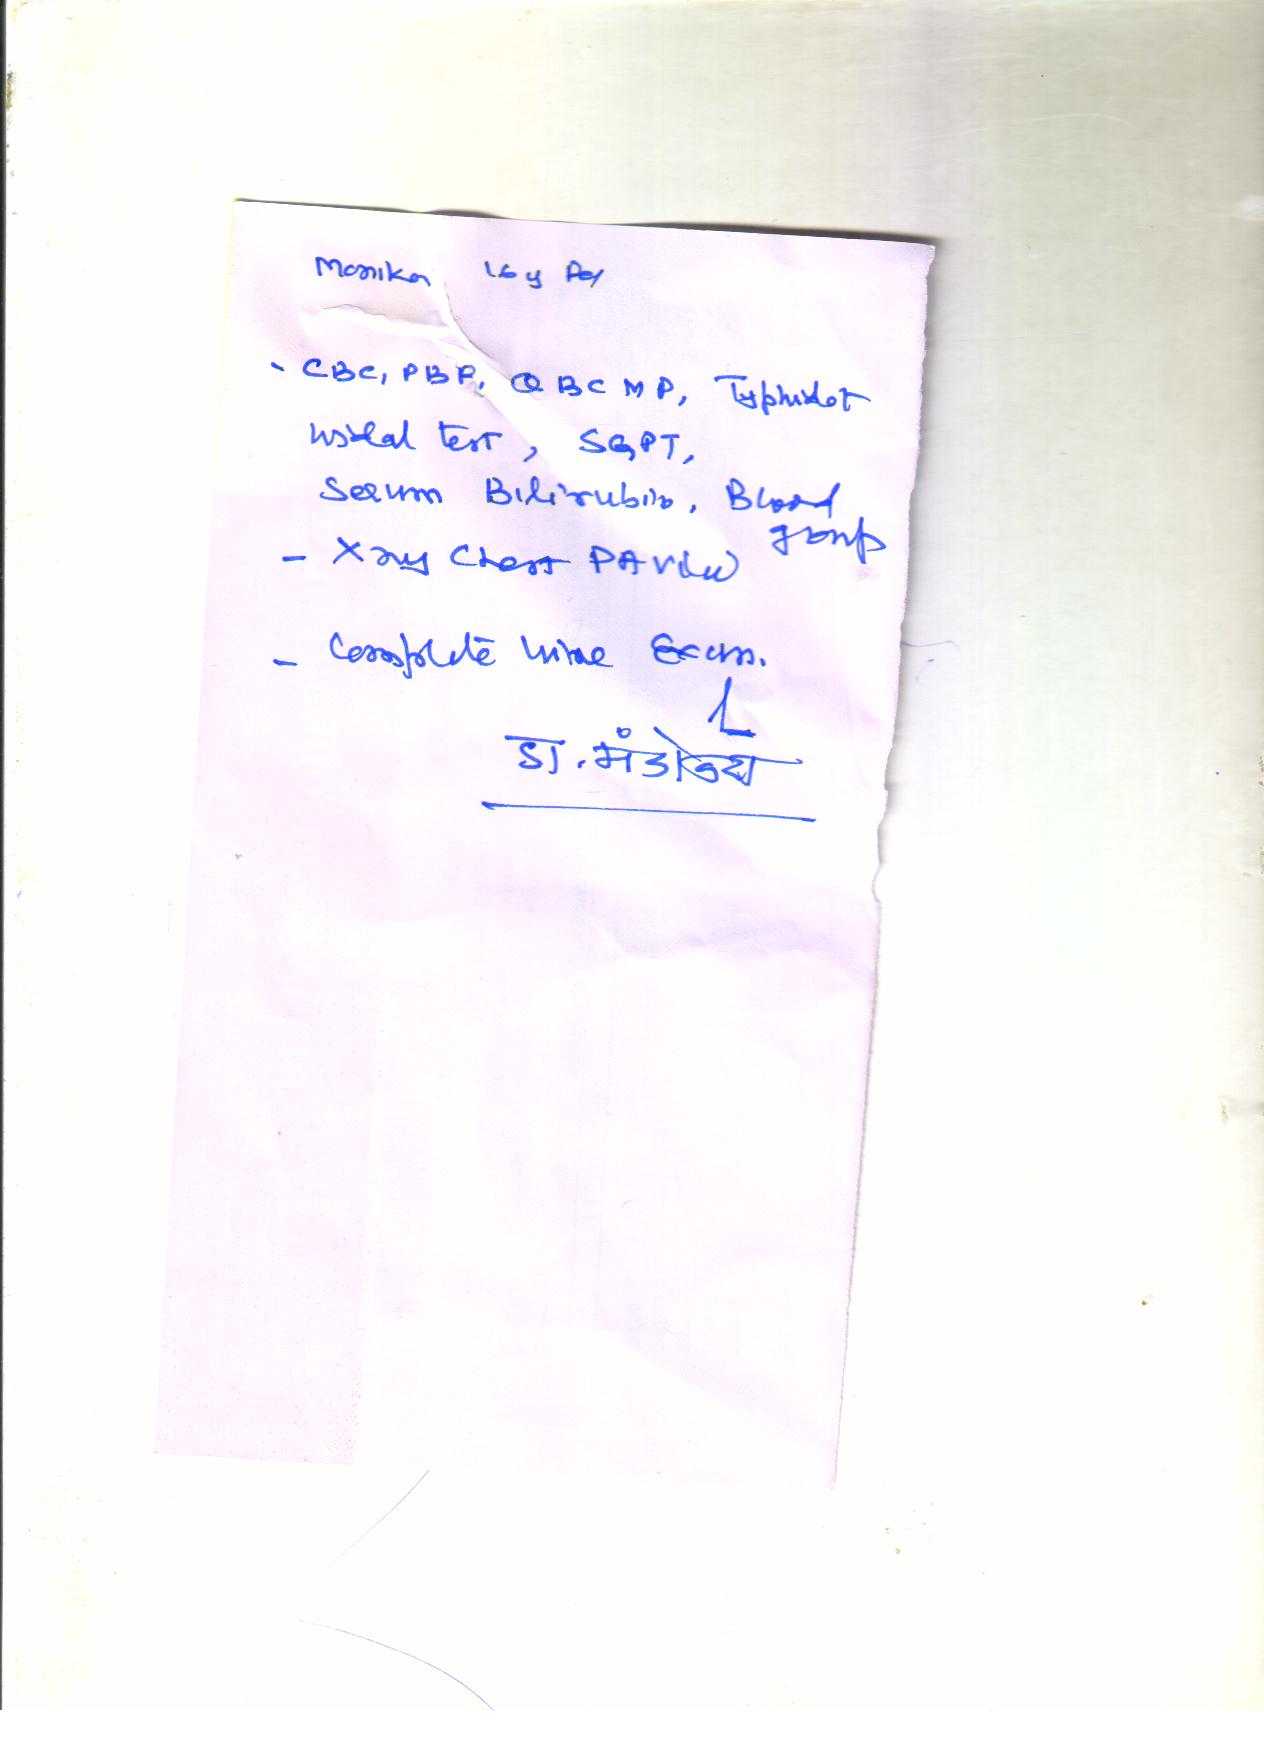 Monika 16 y
- CBC, PBF, QBC MP, Typhidot
widal test, SGPT,
Serum Bilirubin, Blood
group
- X ray Chest PA view
- Complete urine Exam.
डा.